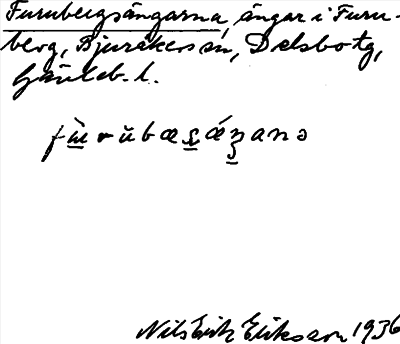 Furubergsängarna, ängar i Furu-
berg, Bjuråkers sn, Delsbo tg,
Gävleb. l.
fù̱rŭbæʂáŋanə
Nils Erik Eliksson 1936